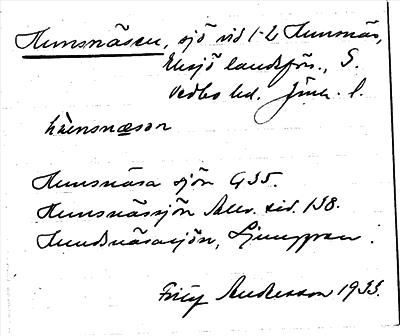 Hunsnäsen, sjö vid 1-2 Hunsnäs,
Eksjö landsförs., S.
Vedbo hd. Jönk. l.
hùnsnæsən
Hunsnäsa sjön G35.
Hunsnässjön Allv. sid. 138.
Hundsnäsasjön, Ljunggren.
Fritz Andersson 1933.